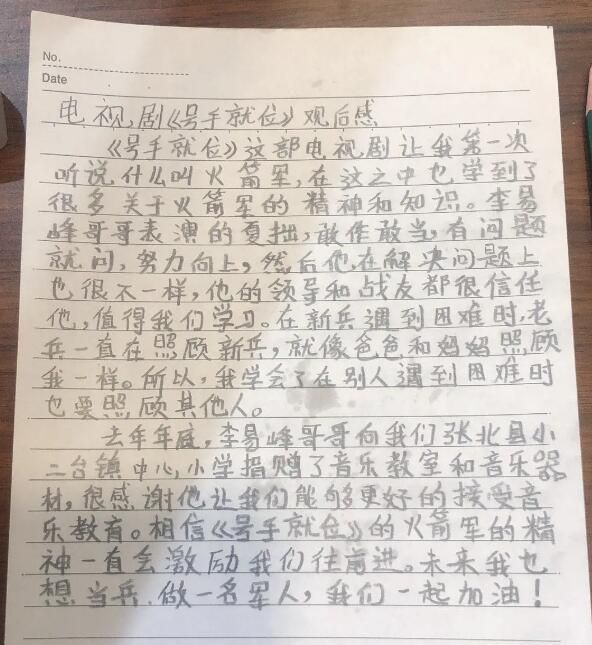 No.
Date
电视剧《号手就位》观后感
《号手就位》这部电视剧让我第一次
听说什么叫火箭军,在这之中也学到了
很多关于火箭军的精神和知识。李易
峰哥哥表演的夏拙,敢作敢当,有问题
就问,努力向上,然后他在解决问题上
也很不一样,他的领导和战友都很信任
他,值得我们学习。在新兵遇到困难时,老
兵一直在照顾新兵,就像爸爸和妈妈照顾
我一样。所以,我学会了在别人遇到困难时
也要照顾其他人。
去年年底,李易峰哥哥向我们张北县小
二台镇中心,小学捐赠了音乐教室和音乐器
材,很感谢他让我们能够更好的接受音
乐教育。相信《号手就位》的火箭军的精
神一直会激励我们往前进。未来我也
想当兵,做一名军人,我们一起加油!